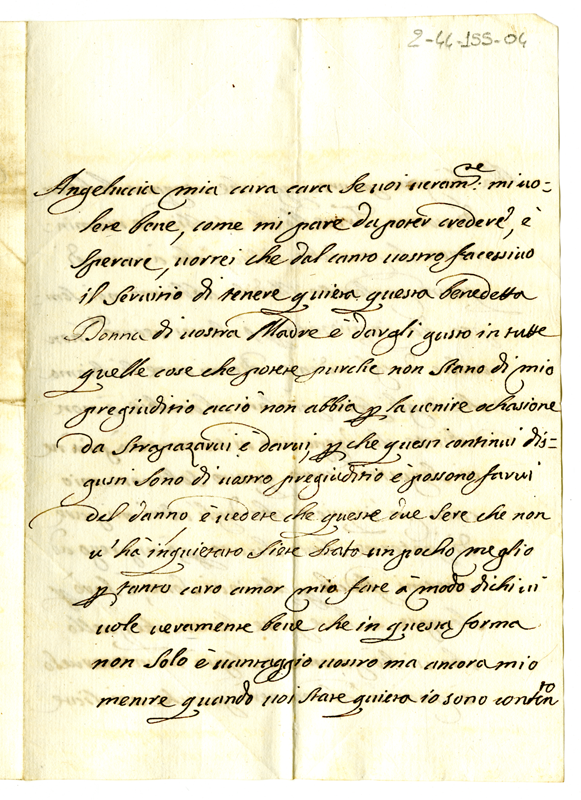 2-44-155-04
Angeluccia mia cara cara se voi veram.re mi vo=
lete bene, come mi pare da poter credere, è
sperare, vorrei che dal canto vostro facessivo
il servitio di tenere quieta questa benedetta
Donna di vostra Madre è dargli gusto in tutte
quelle cose che potete purche non siano di mio
pregiuditio acciò non abbia p la venire ochasione
da strapazarvi è darvi, p che questi continui dis=
gusti sono di vostro pregiuditio è possono farvi
del danno è vedete che queste due sere che non
v'hà inquietato siete stato un pocho meglio
p tanto caro amor mio fate à modo di chi vi
vole veramente bene che in questa forma
non solo è vantaggio vostro ma ancora mio
mentre quando voi state quieta io sono contento